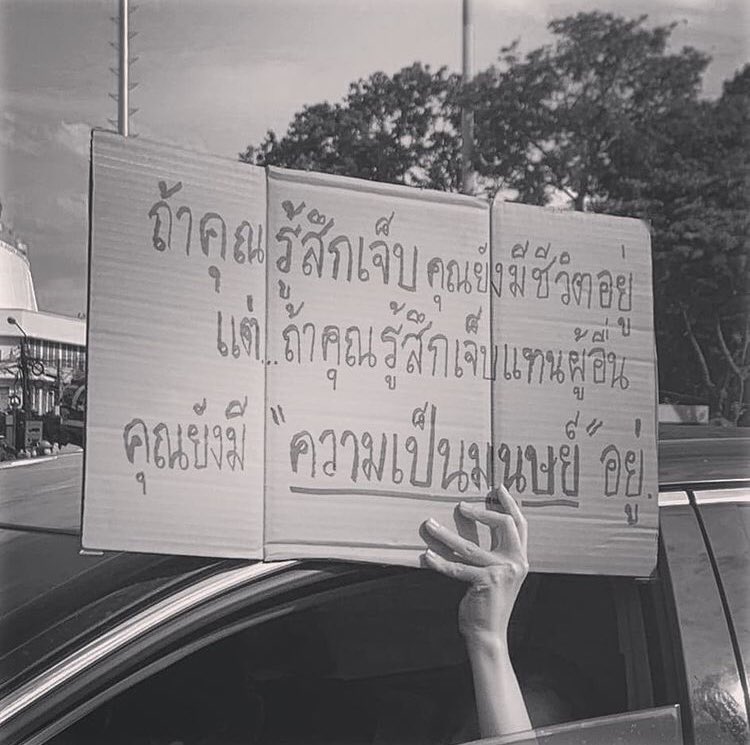 ถ้าคุณรู้สึกเจ็บ คุณยังมีชีวิตอยู่
แต่...ถ้าคุณรู้สึกเจ็บแทนผู้อื่น
คุณยังมี "ความเป็นมนุษย์" อยู่.